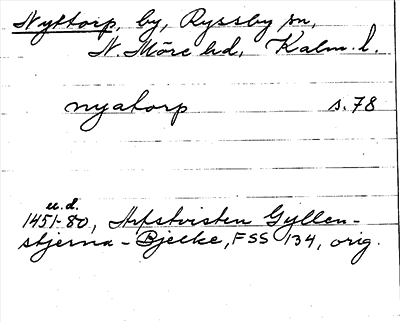 Nyttorp, by, Ryssby sn,
N. Möre hd, Kalm. l.
nyatorp s. 78
u.d.
1451-80, Arvstvisten Gyllen-
stjerna - Bjelke, FSS 134, orig.